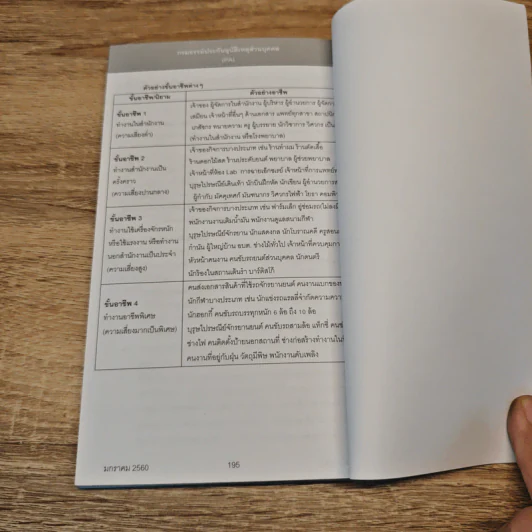 กรมธรรม์ประกันอุบัติเหตุส่วนบุคคล
ตัวอย่างชั้นอาชีพต่าง ๆ
ชั้นอาชีพ/นิยาม
ตัวอย่างอาชีพ
ชั้นอาชีพ 1
ทำงานในสำนักงาน
(ความเสี่ยงต่ำ)
เจ้าของ ผู้จัดการในสำนักงาน ผู้บริหาร ผู้อำนวยการ
เสมียน เจ้าหน้าที่อื่นๆ ด้านเอกสาร แพทย์ทุกสาขา
เภสัชกร ทนายความ ครู ผู้บรรยาย นักวิชาการ วิศวกร
(ทำงานในสำนักงาน หรือโรงพยาบาล)
ชั้นอาชีพ 2
ทำงานสำนักงานเป็น
ครั้งคราว
(ความเสี่ยงปานกลาง)
เจ้าของกิจการบางประเภท เช่น ร้านทำผม ร้านตัดเสื้อ
ร้านดอกไม้สด ร้านประดับยนต์ พยาบาล ผู้ช่วยพยาบาล
เจ้าหน้าที่ห้อง Lab การฉายเล็กซเรย์ เจ้าหน้าที่การแพทย์
บุรุษไปรษณีย์เดินเท้า นักบินฝึกหัด นักเขียน ผู้อำนวยการ
ผู้กำกับ มัคคุเทศก์ มัณฑนากร วิศวกรไฟฟ้า โยธา
ชั้นอาชีพ 3
ทำงานใช้เครื่องจักรหนัก
หรือใช้แรงงาน หรือทำงาน
นอกสำนักงานเป็นประจำ
(ความเสี่ยงสูง)
เจ้าของกิจการบางประเภท เช่น ฟาร์มเล็ก อู่ซ่อมรถ
พนักงานงานเติมน้ำมัน พนักงานดูแลสนามกีฬา
บุรุษไปรษณีย์จักรยาน นักแสดงกล นักโบราณคดี
กำนัน ผู้ใหญ่บ้าน อบต. ช่างไม้ทั่วไป เจ้าหน้าที่ควบคุม
หัวหน้าคนงาน คนขับรถยนต์ส่วนบุคคล นักดนตรี
นักร้องในสถานเต้นรำ บาร์ดิสโก้
ชั้นอาชีพ 4
ทำงานอาชีพพิเศษ
(ความเสี่ยงมากเป็นพิเศษ)
คนส่งเอกสารสินค้าที่ใช้รถจักรยานยนต์ คนงานแบกของ
นักกีฬาบางประเภท เช่น นักแข่งรถแรลลี่จำกัดความ
นักฮอกกี้ คนขับรถบรรทุกหนัก 6 ล้อ ถึง 10 ล้อ
บุรุษไปรษณีย์จักรยานยนต์ คนขับรถสามล้อ แท็กซี่
ช่างไฟ คนติดตั้งป้ายนอกสถานที่ ช่างก่อสร้างทำงานใน
คนงานที่อยู่กับฝุ่น วัตถุมีพิษ พนักงานดับเพลิง
มกราคม 2560
195